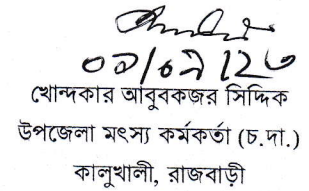 ০৯/০৭/২৩
খোন্দকার আবুবকজর সিদ্দিক
উপজেলা মৎস্য কর্মকর্তা (চ.দা.)
কালুখালী, রাজবাড়ী